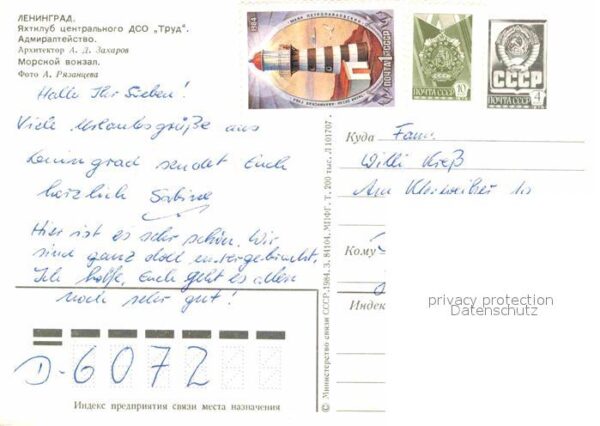 ЛЕНИНГРАД.
Яхтклуб центрального ДСО „Труд".
Адмиралтейство.
Архитектор А. Д. Захаров
Морской вокзал.
Фото А. Рязанцева
Hallo Ihr Lieben!
Viele Urlaubsgrüße aus
Leningrad sendet Euch
herzlich Sabine
Hier ist es sehr schön. Wir
sind ganz doll untergebracht.
Ich hoffe, Euch geht es allen
noch sehr gut!
D-6072
Индекс предприятия связи места назначения
© Министерство связи СССР. 1984. З. 84104. МПФГ. Т. 200 тыс. Л 101707.
1984
ПОЧТА 1 СССР
10 К
ПОЧТА СССР
СССР
ПОЧТА СССР 4 К
Куда Fam.
Willi Kreß
Am
Кому
Индекс
privacy protection
Datenschutz